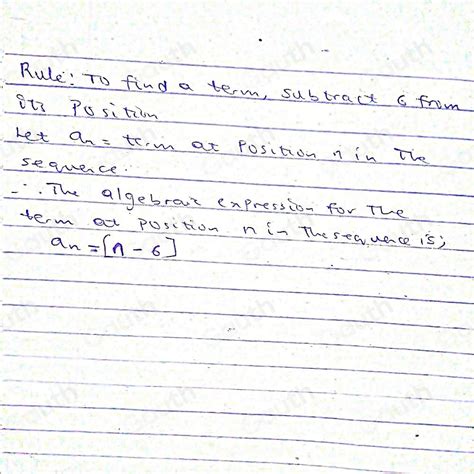 Rule: To find a term, subtract 6 from
its Position
Let an = term at Position n in The
sequence.
∴ The algebraic expression for The
term at position n in The sequence is;
an = [n - 6]